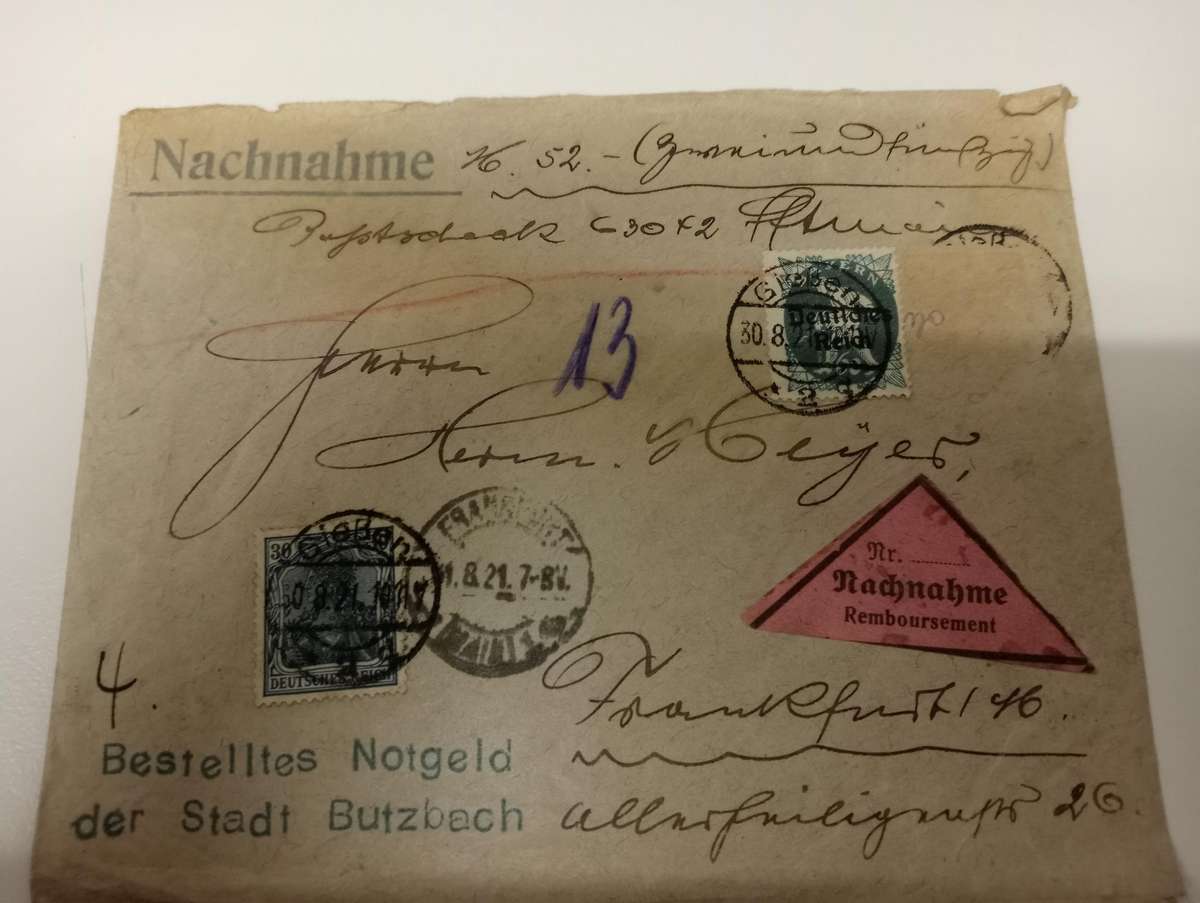 Nachnahme M 52.- (Zweiundfünfzig)
Postscheck 63042 Fftmain
BAYERN
Deutsches
Reich
Gießen
30.8.21
* 2 d
13
Herrn
Herm. Meÿer,
30
DEUTSCHES REICH
Gießen
30.8.21. 10-11V
FRANKFURT
1.8.21. 7-8V.
(MAIN) 1
Nr. ............
Nachnahme
Remboursement
4.
Frankfurt/M.
Bestelltes Notgeld
der Stadt Butzbach
Allerheiligenstr 26.